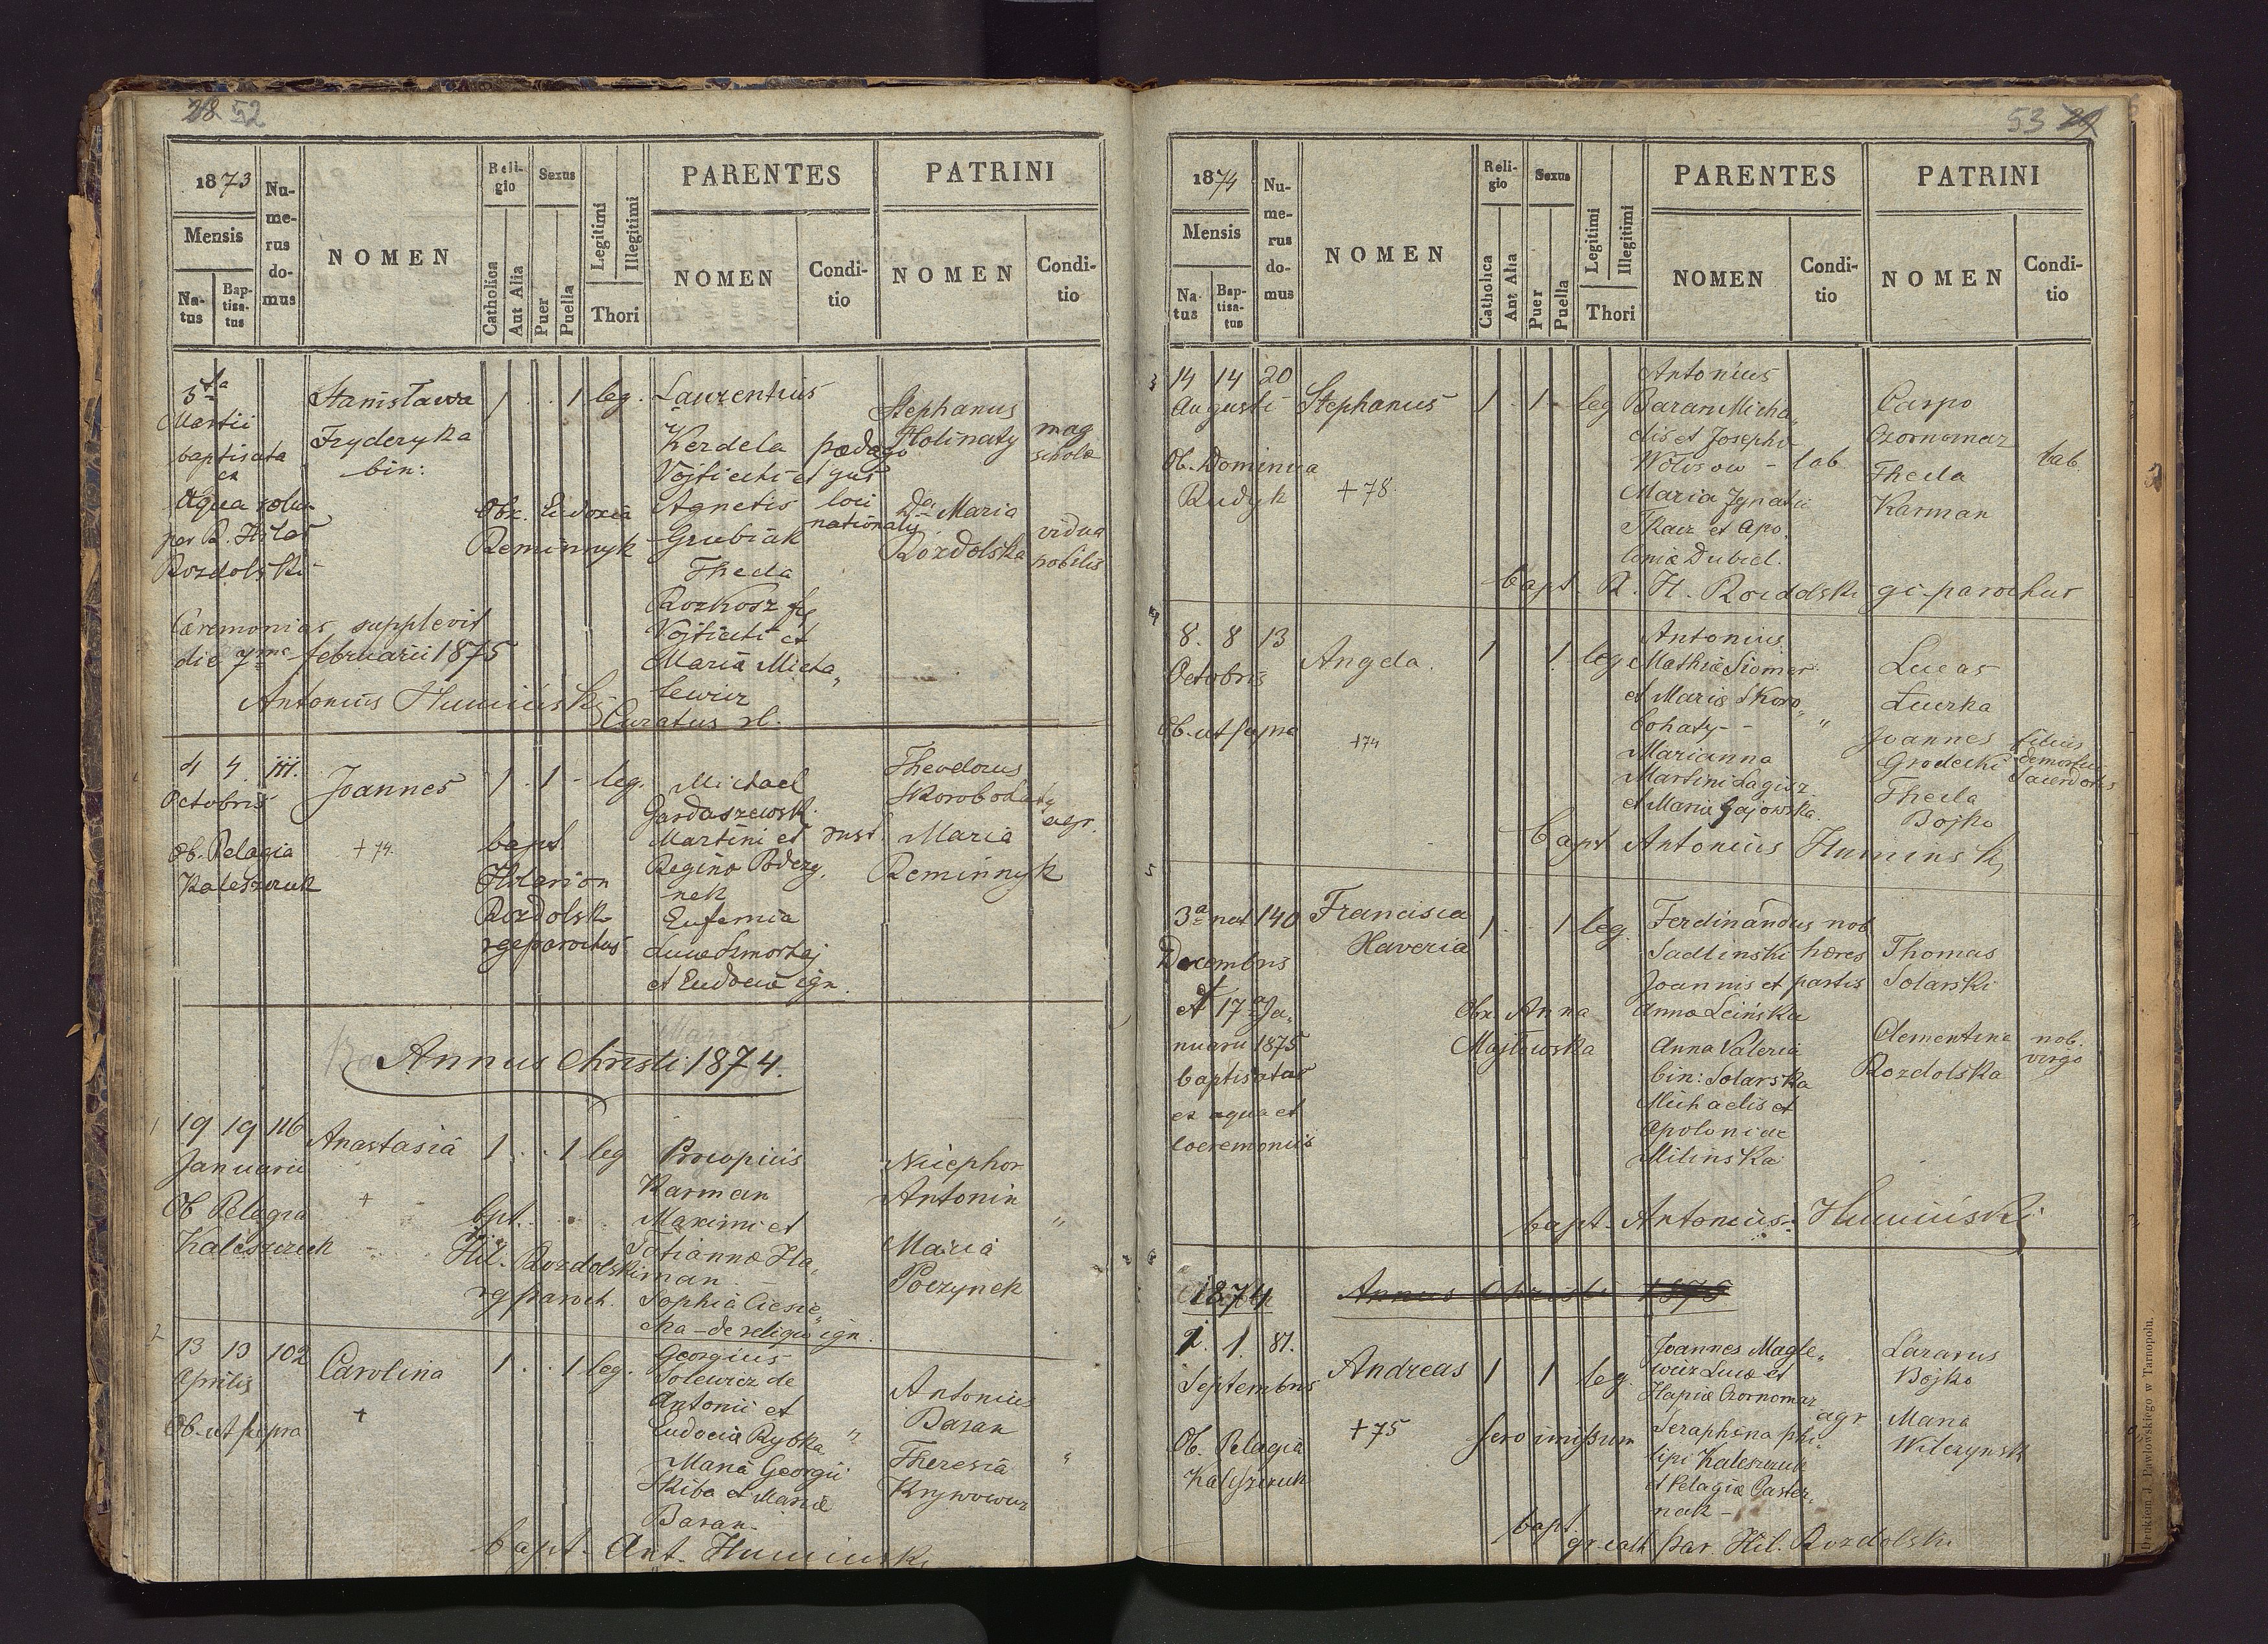 28 52
1873
Mensis
Na-
tus
Bap-
tisa-
tus
Nu-
me-
rus
do-
mus
NOMEN
Reli-
gio
Catholica
Aut Alia
Sexus
Puer
Puella
Legitimi
Illegitimi
Thori
PARENTES
NOMEN
Condi-
tio
PATRINI
NOMEN
Condi-
tio
5ta
Martii
baptisata
ex
aqua solum
per R. Hilar
Rozdolski
Stanisława
Fryderyka
bin:
1 . . 1 leg.
Obx. Eudoxia
Reminnyk
Laurentius
Kerdela
Vojtiechi et
Agnetis
Grubiak
Thecla
Rozkosz
Vojtiechi et
Maria Micha
lewicz
pædago
gus
loci
nationaly
Stephanus
Holinaty
Da Maria
Rozdolska
mag
scholæ
vidua
nobilis
Cæremonias supplevit
die 7ma februarii 1875
Antonius Humiński
Curatus rl.
4 4 111.
Octobris
Ob. Pelagia
Kaleszczuk
Joannes
+ 74.
1 . 1 - leg.
bapt.
Hilarion
Rozdolsk
rgparochus
Michael
Gardaszewsk.
Martini et
Regina Poderg.
nek
Eufemia
Lucæ Smorhaj
et Eudocia ign.
rust.
Theodorus
Skorobohaty
Maria
Reminnyk
agr.
Annus Christi 1874.
1
19 19 116
Januarii
Ob Pelagia
Kaleszczuk
Anastasia
+
1 . . 1 leg
bpt.
Hil. Rozdolski
rg paroch.
Procopius
Karman
Maximi et
Tatiannæ Ha,
man -
Sophia Ciesie
cha - de reliquo ign.
Nicephor
Antonin
Maria
Poczynek
"
2
13 13 102
Aprilis
Ob. ut supra
Carolina
+
1 . . 1 leg.
Georgius
Solewicz de
Antonii et
Eudocia Rybka "
Maria Georgii
Skiba et Maria
Baran.
Antonius
Baran
Theresia
Krywowicz
"
bapt. Ant. Huminski
53 29
1874
Mensis
Na-
tus
Bap-
tisa-
tus
Nu-
me-
rus
do-
mus
NOMEN
Reli-
gio
Catholica
Aut Alia
Sexus
Puer
Puella
Legitimi
Illegitimi
Thori
PARENTES
NOMEN
Condi-
tio
PATRINI
NOMEN
Condi-
tio
3
14 14 20
Augusti
Ob. Dominica
Rudyk
Stephanus
+ 78.
1 . 1 - leg
Antonius
Baran Micha,
elis et Josephi
Wolisow - lab
Maria Ignatii
Tkacz et Apo,
lonia Dubiel.
Carpo
Czornomaz
Thecla
Karman
lab.
bapt. R. H. Rozdolski gr. parochus
4
8. 8 13
Octobris
Ob. ut supra
Angela.
+74
1 1 leg
Antonius
Mathiæ Siomer
et Maria Skoro,
bohaty - - "
Marianna
Martini Lagisz
et Maria Gajowska.
Lucas
Łuczka
Joannes
Grodecki
Thecla
Bojko
filius
demortui
Sacerdotis
bapt Antonius Huminski
5
3a nat 140
Decembris
et 17a Ja,
nuarii 1875
baptisatas
ex aqua et
cæremoniis
Francisca
Xaveria
1 . . 1 leg.
Obx Anna
Majtewska
Ferdinandus nob
Sadlinski hæres
Joannis et partis
Anna Leińska
Anna Valeria
bin: Solarska
Michaelis et
Apoloniæ
Milinska
Thomas
Solarski
Clementina
Rozdolska
nob.
virgo
bapt. Antonius Humiński
6
1874
Annus Christi 1875
1. 1. 81.
Septembris
Ob. Pelagia
Kaleszczuk
Andreas
+ 75
1 1 leg
sero imissum
Joannes Magle,
wicz Lucæ et
Hapiæ Czornomaz
Seraphina phi,
lipi Kaleszczuk
et Pelagiæ Paster,
nak -
agr
Lazarus
Bojko
Maria
Wilczynsk
bapt.
gr. cath par. Hil. Rozdolski
Drukiem J. Pawłowskiego w Tarnopolu.